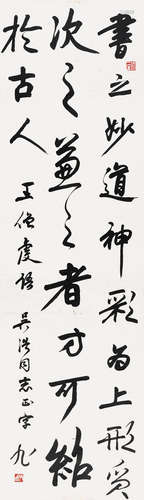 書之妙道神彩為上形質
次之兼之者方可紹
於古人
王僧虔語 吴浩同志正字